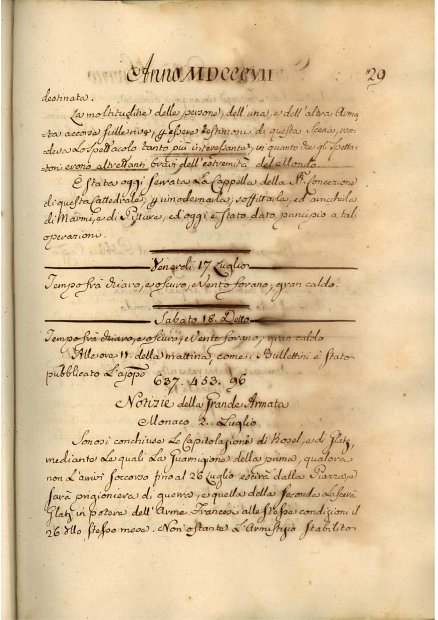 Anno MDCCCVII 29
destinata.
La moltitudine delle persone, dell'una, e dell'altra Arma-
ta accorsa sulle rive, p essere testimoni di questa Scena, ren-
deva lo Spettacolo tanto più interessante, in quanto che gli Spetta-
tori erono altrettanti bravi dell'estremità del Mondo.
È stata oggi serrata la Cappella della SSma Concezione
di questa Cattedrale, p rimodernarla, soffittarla, ed arricchirla
di Marmi, e di Pitture, ed oggi è stato dato principio a tali
operazioni.
Venerdì 17 Luglio
Tempo frà chiaro, e oscuro, e Vento forano, gran caldo.
Sabato 18. Detto
Tempo frà chiaro, e oscuro, e Vento forano, gran caldo
Alle ore 11 della mattina, come i Bullettini è stato
pubblicato L'
637. 453. 96
Notizie della Grande Armata
Monaco 2. Luglio.
Sonosi conchiuse le Capitolazioni di Kosel, e di Glatz,
mediante le quali La Guarnigione della prima, qualora
non L'arrivi soccorso fino al 26 Luglio escirà dalla Piazza, e
sarà prigioniera di guerra, e quella della seconda Lascerà
Glatz in potere dell'Arme Francesi alle stesse condizioni il
26 dllo stesso mese. Non ostante L'Armistizio stabilito